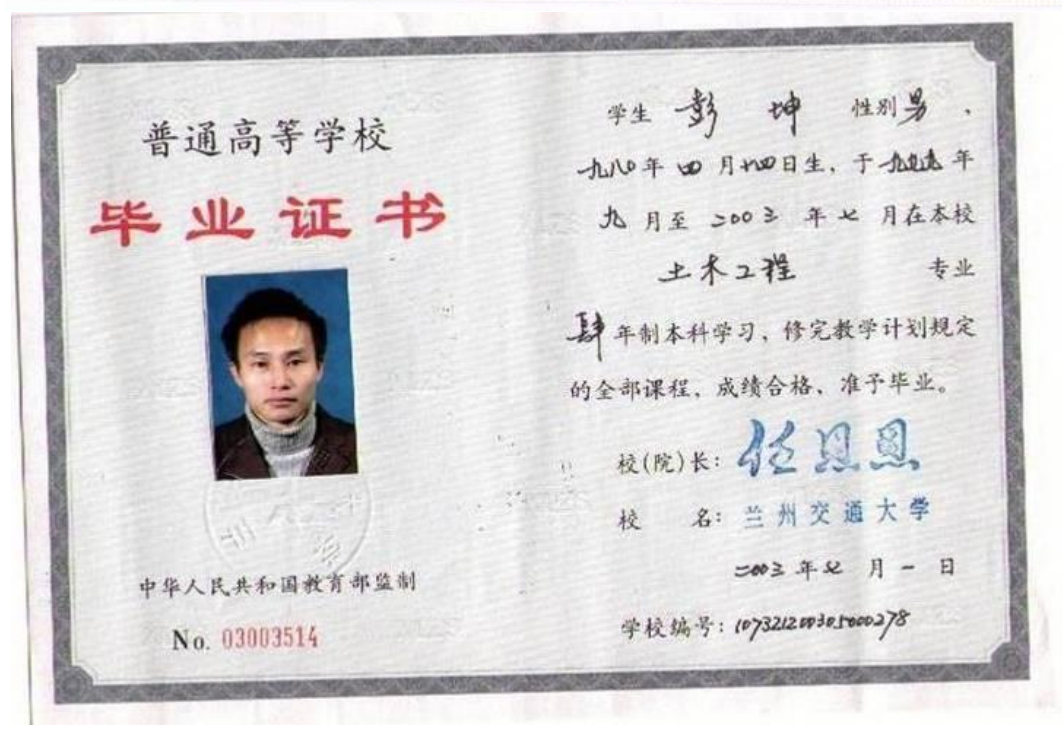 普通高等学校
毕业证书
中华人民共和国教育部监制
No. 03003514
学生 彭 坤 性别 男 ,
一九八0年 四 月 十四日生, 于 一九九九 年
九 月至 二00三 年 七 月在本校
土木工程 专业
肆 年制本科学习, 修完教学计划规定
的全部课程, 成绩合格, 准予毕业。
校(院)长: 任恩恩
校 名: 兰州交通大学
二00三 年 七 月 一 日
学校编号: 107321200305000278